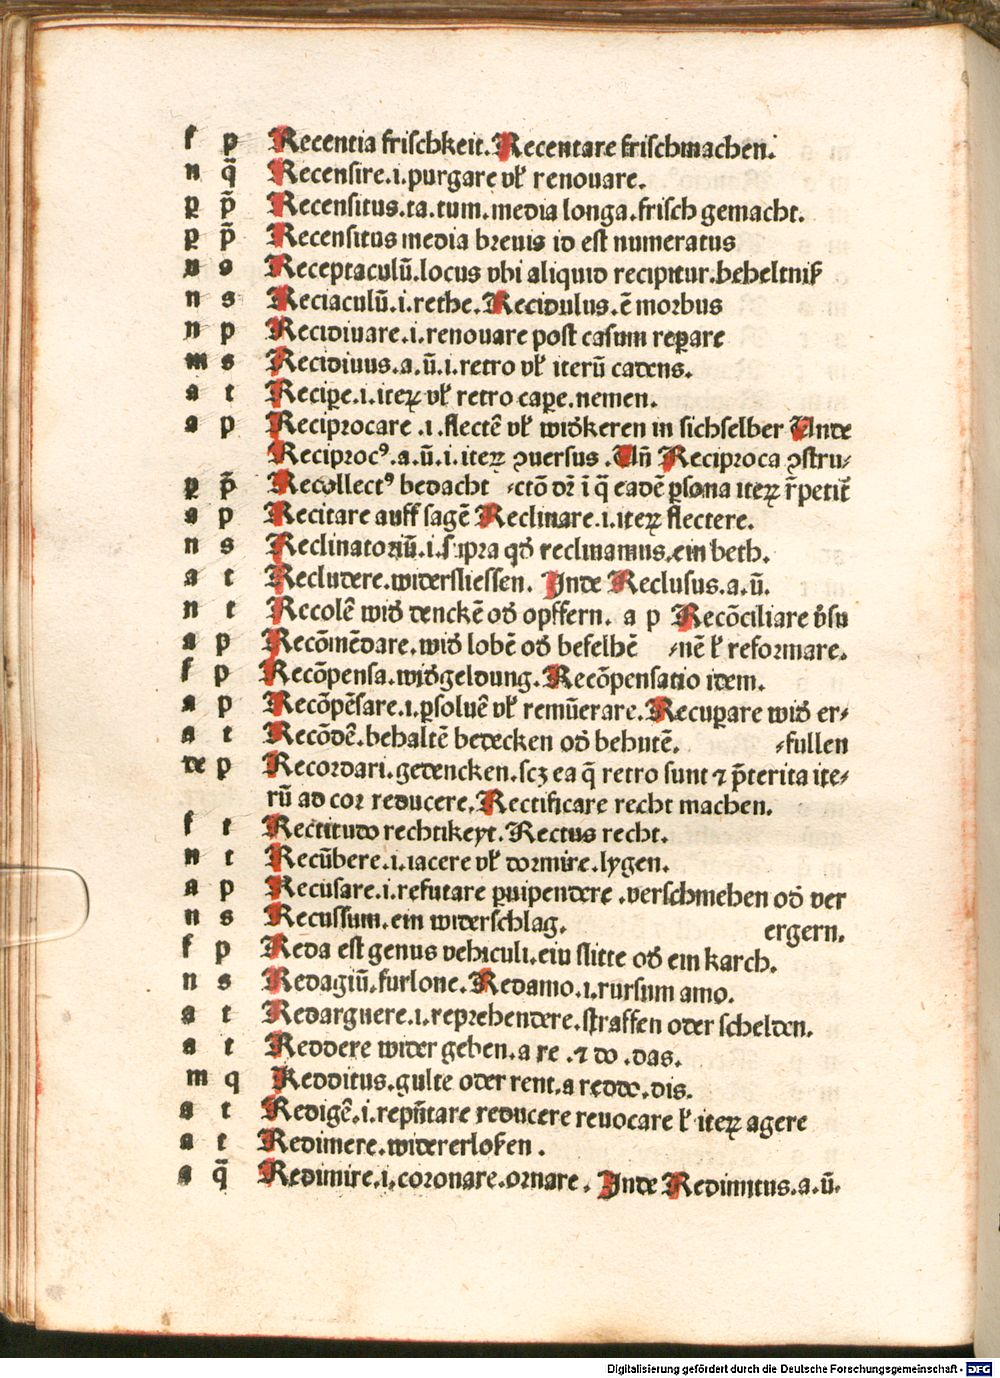 f p Recentia frischkeit. Recentare frischmachen.
n q̃ Recensire .i. purgare vł renouare.
p p̃ Recensitus .ta. tum. media longa. frisch gemacht.
p p̃ Recensitus media breuis id est numeratus
n s Receptaculū. locus vbi aliquid recipitur. beheltniß
n s Reciaculū .i. rethe. Recidulus. ē morbus
n p Recidiuare .i. renouare post casum repare
m s Recidiuus .a. ū. i. retro vł iterū cadens.
a t Recipe .i. iteꝝ vł retro cape. nemen.
a p Reciprocare .i. flectē vł widkeren in sichselber Unde
Reciproc⁹ .a. ū. i. iteꝝ ꝯuersus. Un̄ Reciproca ꝯstru⸗
p p̃ Recollect⁹ bedacht ⸗ctō dr̄ i q̄ eadē ꝑsona iteꝝ r̄petit
a p Recitare auff sagē Reclinare .i. iteꝝ flectere.
n s Reclinatoriū .i. supra qd̄ reclinamus. ein beth.
a t Recludere. widersliessen. Inde Reclusus .a. ū.
n t Recolē wid̄ denckē od̄ opffern. a p Recōciliare v̄su
a p Recōmēdare. wid̄ lobē od̄ befelhē ⸗nē ł reformare.
f p Recōpensa. wid̄geldung. Recōpensatio idem.
a p Recōpēsare .i. ꝑsoluē vł remūerare. Recuꝑare wid̄ er⸗
a t Recōdē. behaltē bedecken od̄ behutē. ⸗fullen
de p Recordari. gedencken. scꝫ ea q̄ retro sunt ⁊ p̄terita ite⸗
rū ad cor reducere. Rectificare recht machen.
f t Rectitudo rechtikeyt. Rectus recht.
n t Recūbere .i. iacere vł dormire. lygen.
a p Recusare .i. refutare ꝑuipendere. verschmehen od̄ ver
n s Recussum. ein widerschlag. ergern.
f p Reda est genus vehiculi. ein slitte od̄ ein karch.
n s Redagiū. furlone. Redamo .i. rursum amo.
a t Redarguere .i. reprehendere. straffen oder schelden.
a t Reddere wider geben. a re .⁊ do .das.
m q Redditus. gulte oder rent. a reddo. dis.
a t Redigē .i. repn̄tare reducere reuocare ł iteꝝ agere
a t Redimere. widererlosen.
a q̃ Redimire .i. coronare. ornare. Inde Redimitus .a. ū.
Digitalisierung gefördert durch die Deutsche Forschungsgemeinschaft - DFG